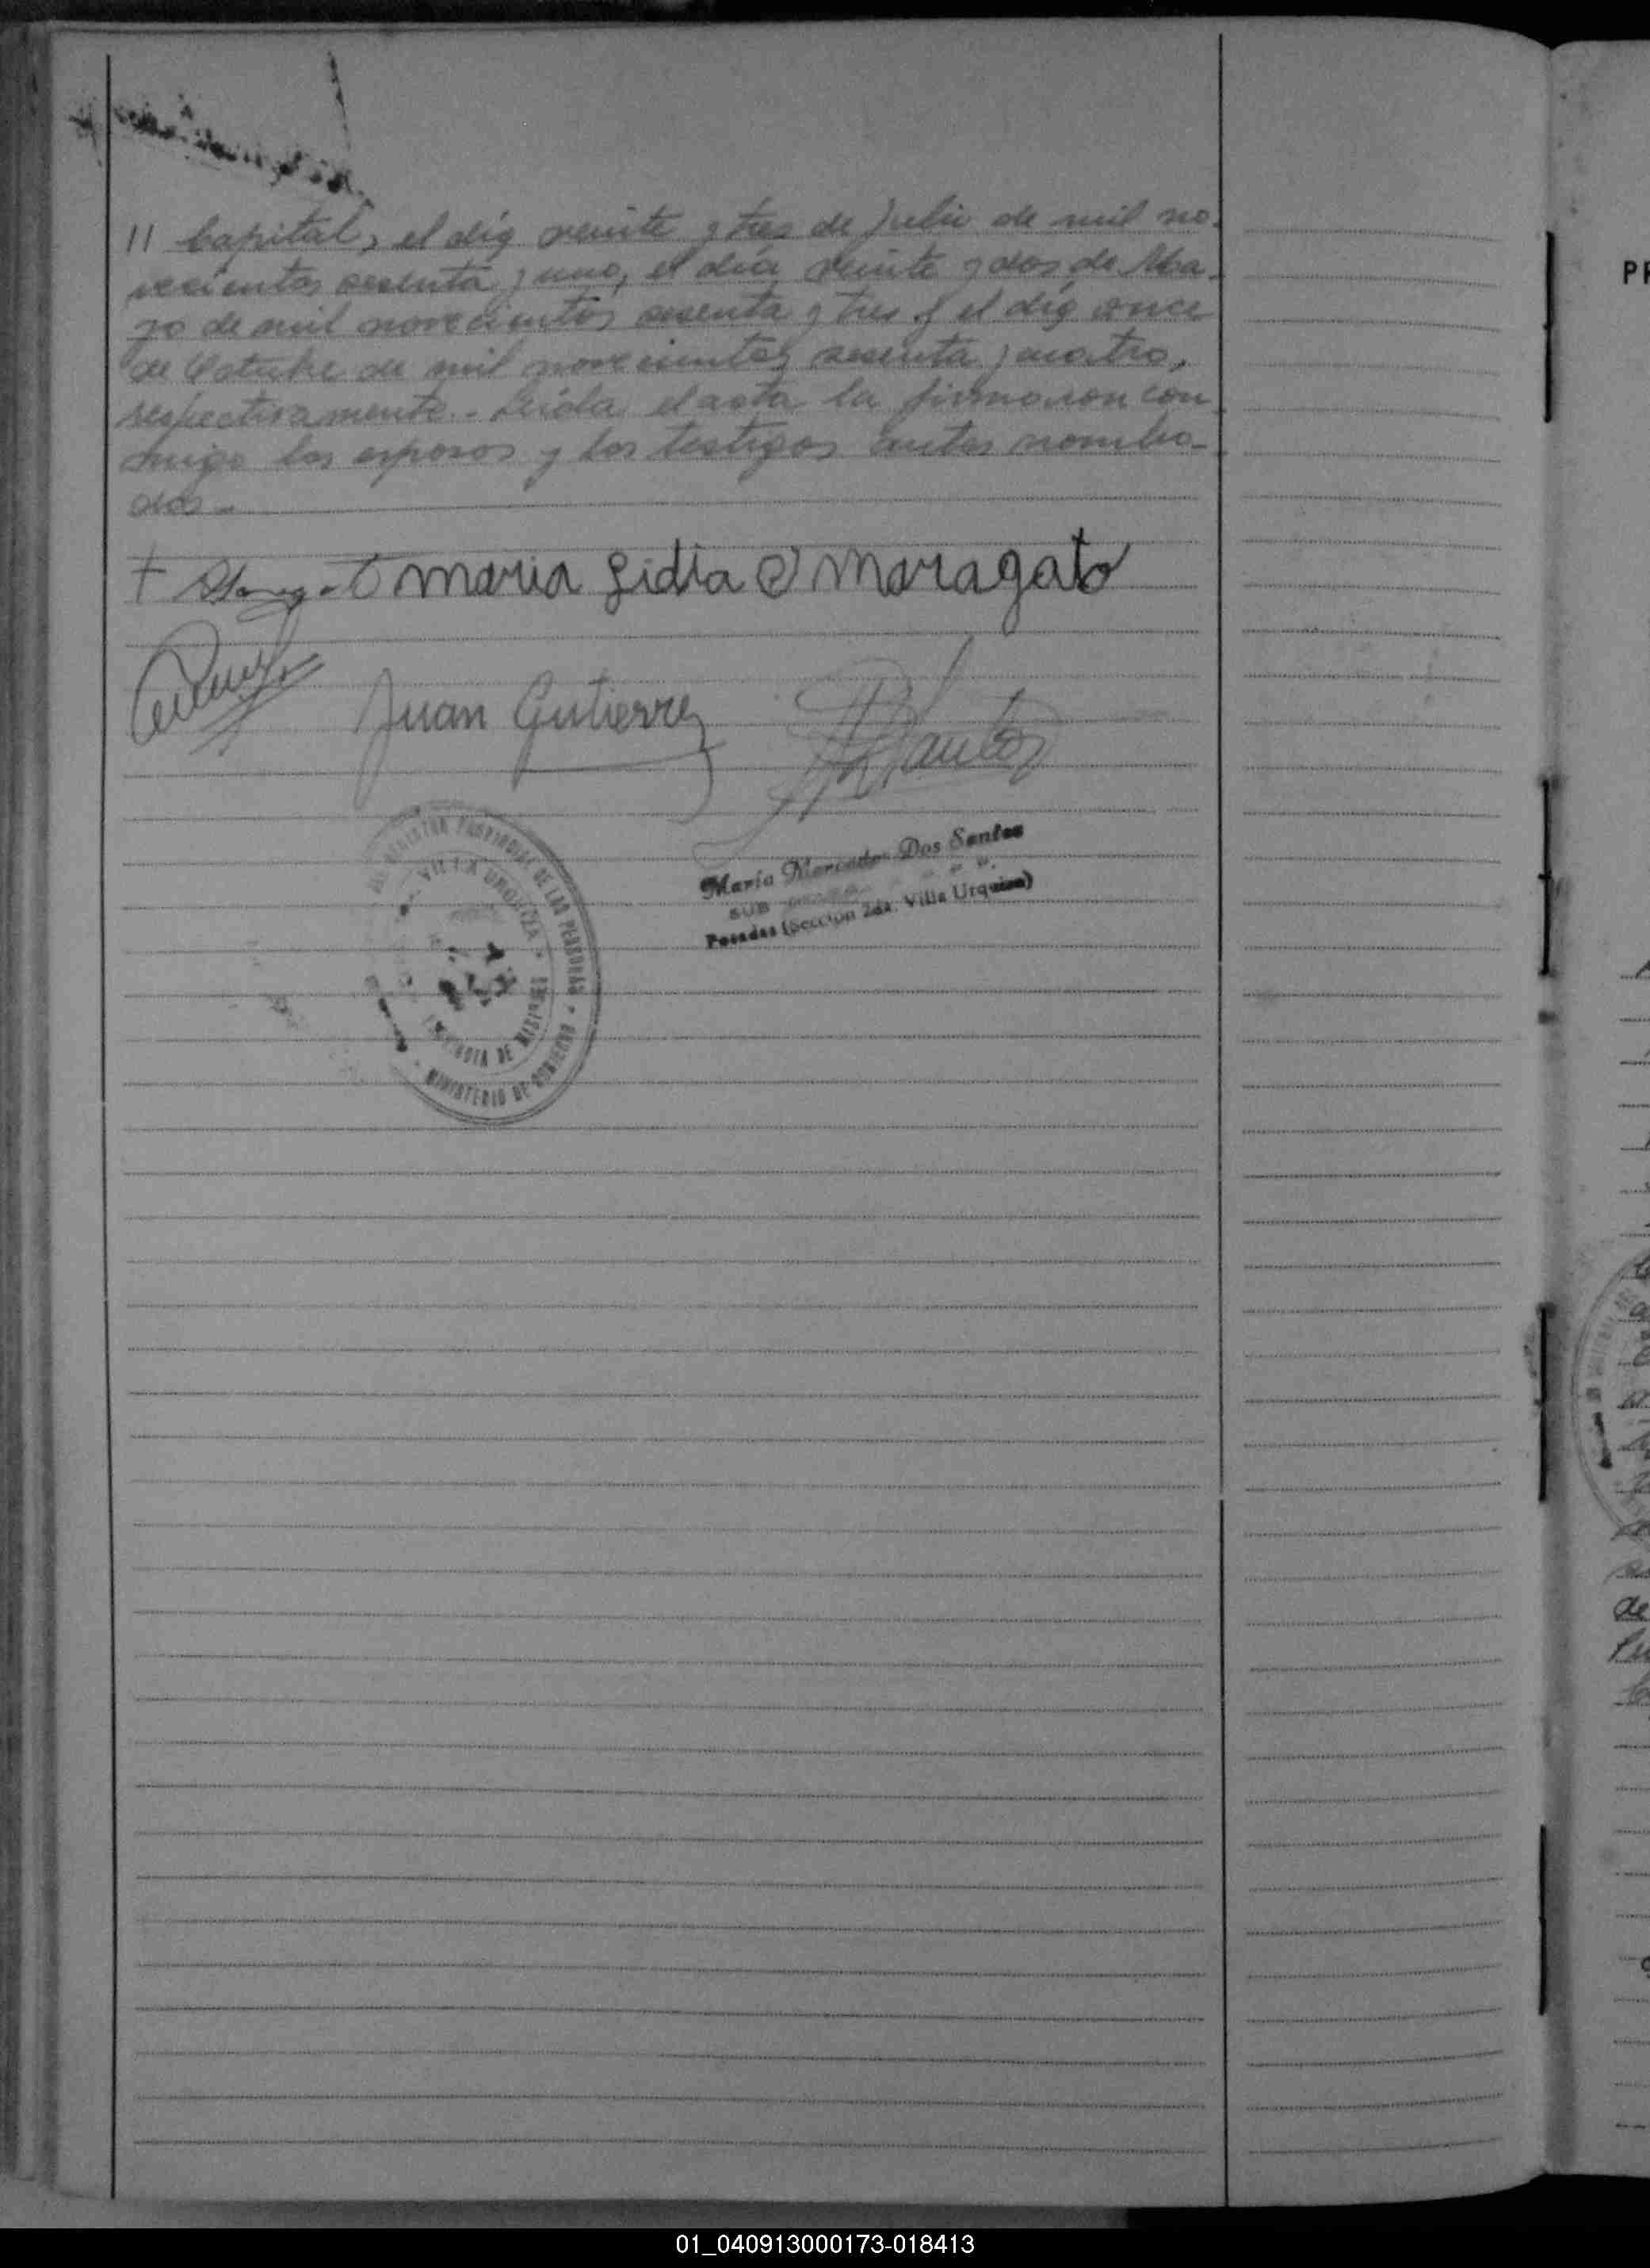 11 Capital, el día veinte y tres de Julio de mil no-
vecientos sesenta y uno, el día veinte y dos de Mar-
zo de mil novecientos sesenta y tres y el día once
de Octubre de mil novecientos sesenta y cuatro,
respectivamente.- Leída el acta la firmaron con-
migo los esposos y los testigos antes nombra-
dos.-
maria Lidia maragato
Juan Gutierrez
María Mercedes Dos Santos
SUB
Posadas (Sección 2da. Villa Urquiza)
PROVINCIAL DE LAS PERSONAS
VILLA URQUIZA
PROVINCIA DE MISIONES
MINISTERIO DE GOBIERNO
01_040913000173-018413